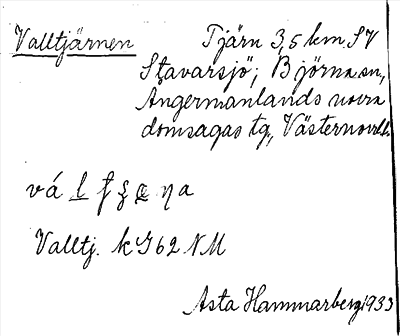 Valltjärnen Tjärn 3,5 km SV
Stavarsjö; Björna sn,
Ångermanlands norra
domsagas tg., Västernorrl.
Valltj. kJ 62 NM
Asta Hammarberg 1933